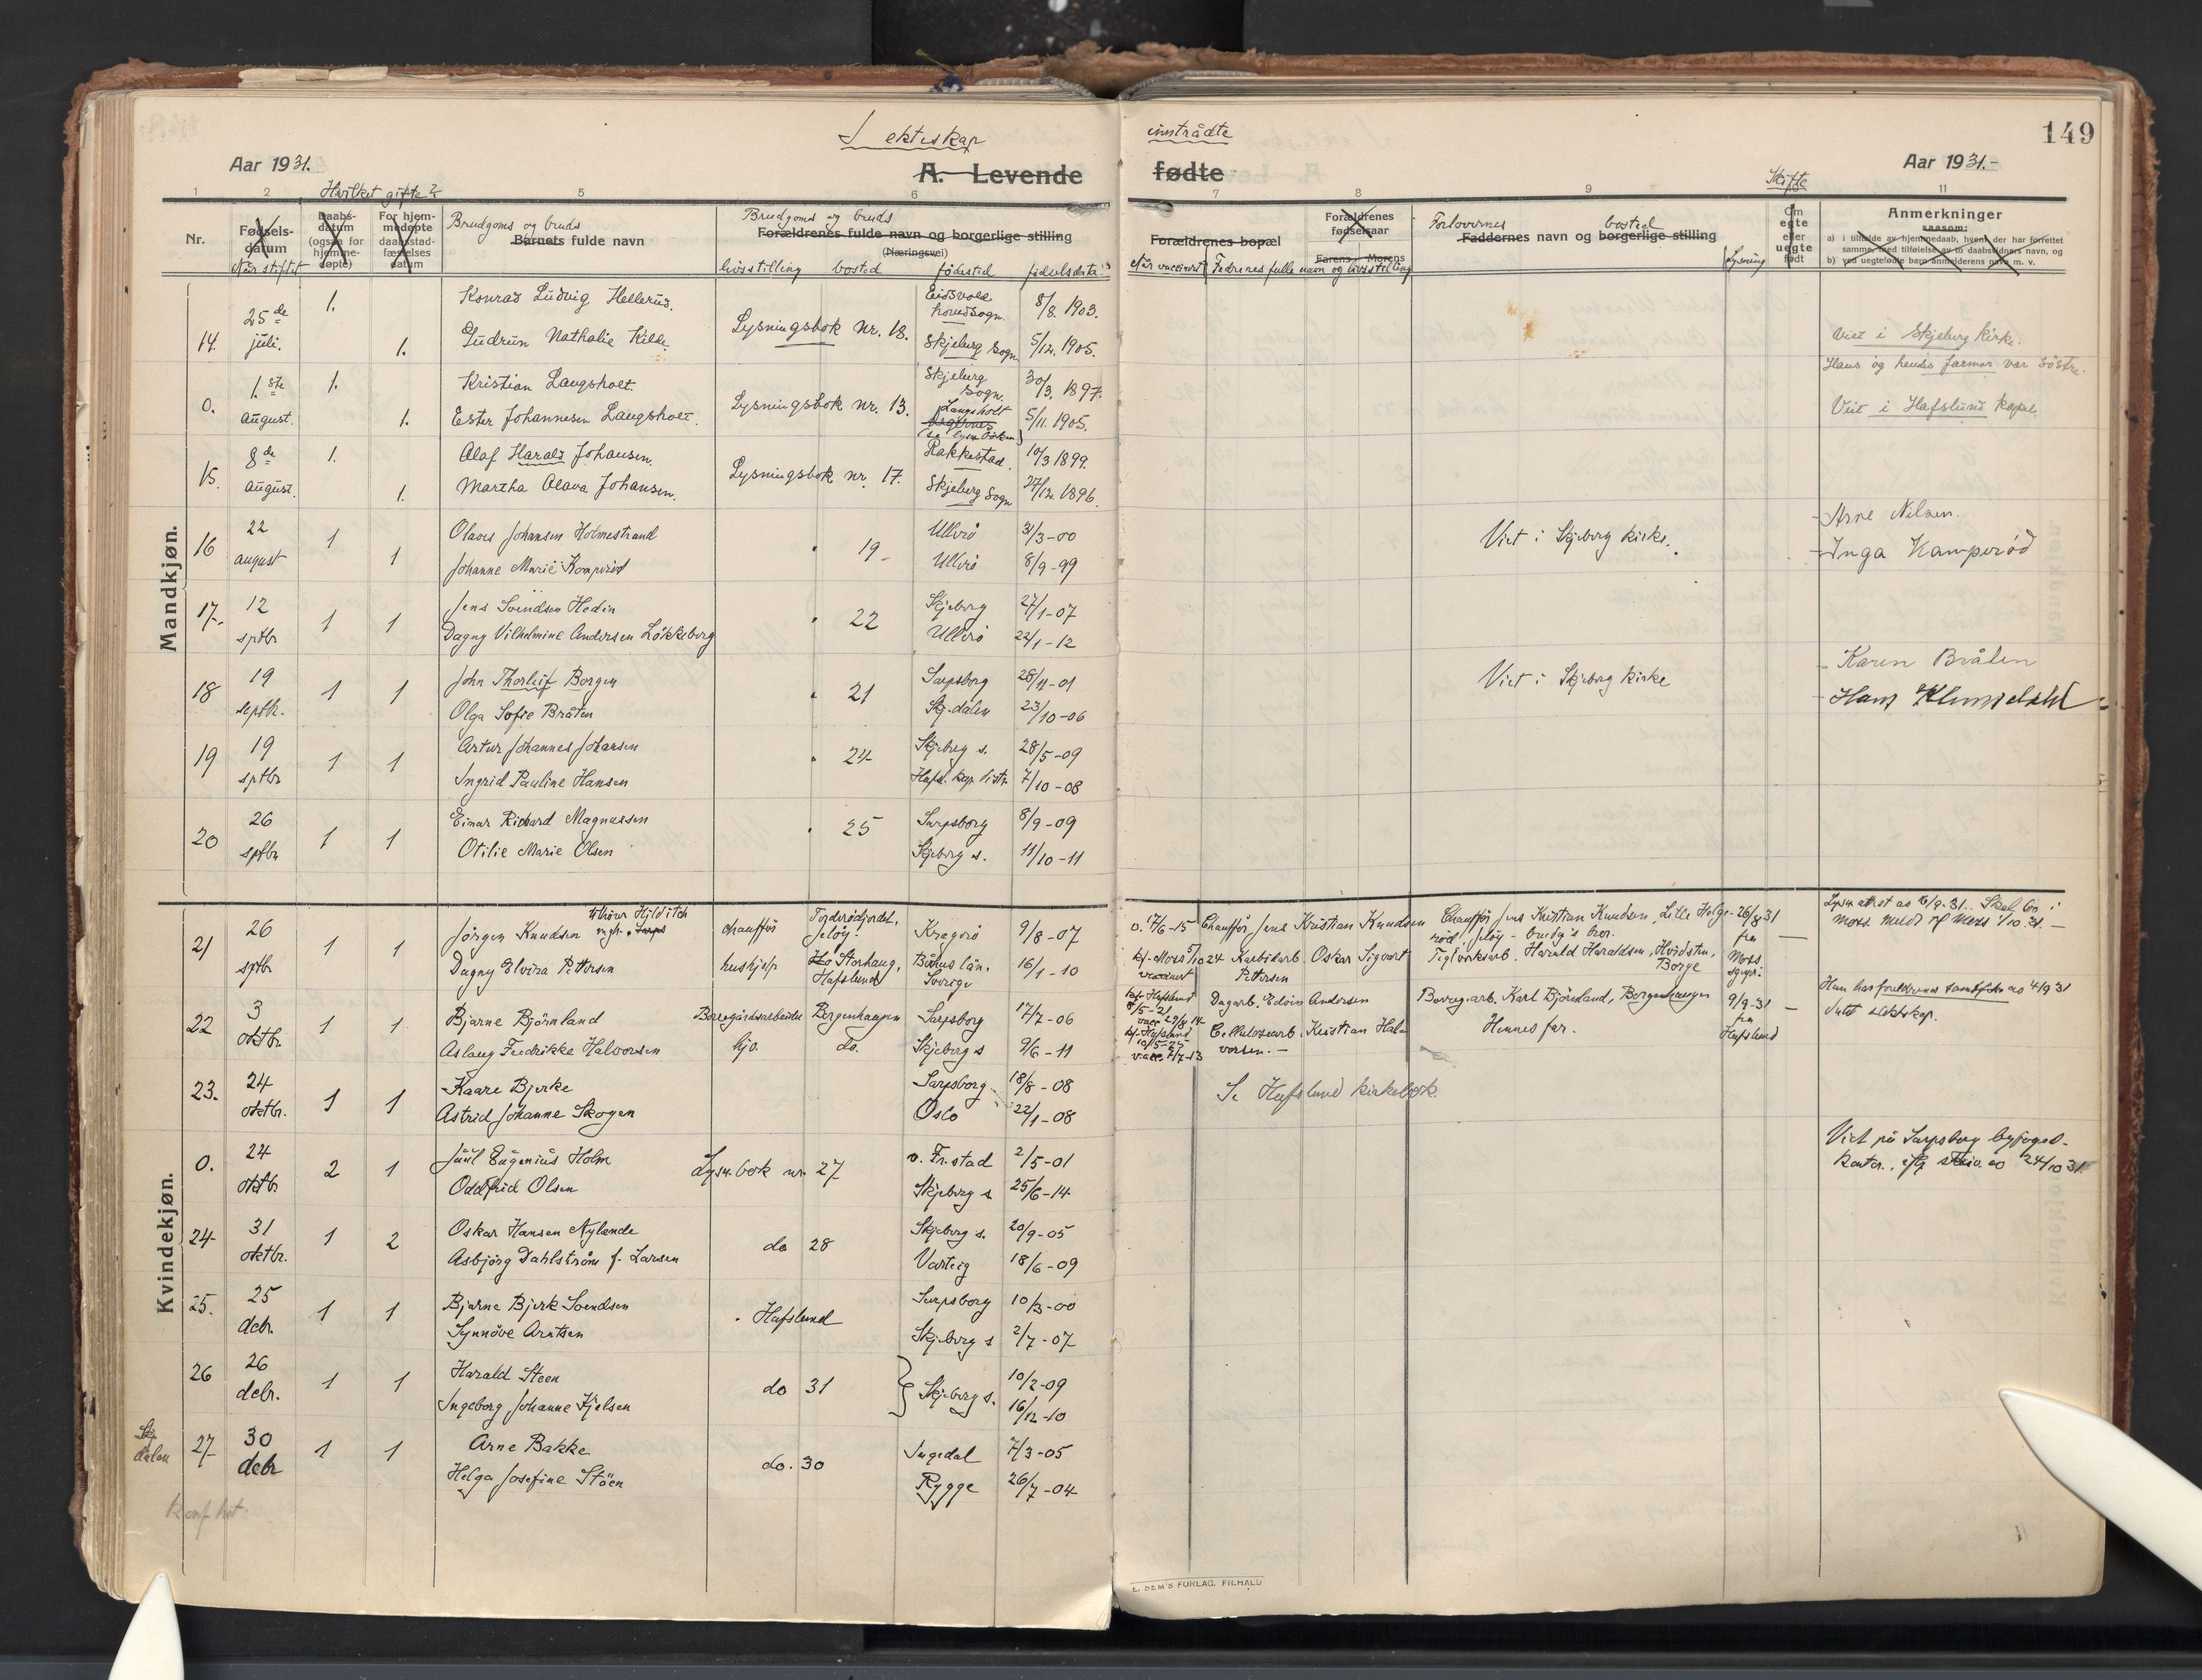 I ektiskap
inntrådte
149
Aar 1931.
A. Levende
fødte
Aar 1931.-
Hvilket gifte?
Skifte
1 2 5 6 7 8 9 11
Nr.
Fødsels-
datum
Når stiftet
Daabs-
datum
(ogsaa for
hjemme-
døpte)
For hjem-
medøpte
daabsstad-
fæstelses
datum
Brudgoms og bruds
Barnets fulde navn
Brudgoms og bruds
Forældrenes fulde navn og borgerlige stilling
(Næringsvei)
livsstilling bosted fødested fødselsdata
Forældrenes bopæl
Når vaccinert
Forældrenes
fødselsaar
Farens Morens
Fedrenes fulle navn og livsstilling
Forlovernes bosted
Faddernes navn og borgerlige stilling
Lysning
Om
egte
eller
uegte
født
Anmerkninger
saasom:
a) i tilfælde av hjemmedaab, hvem der har forrettet
samme, med tilføielse av to daabsvidners navn, og
b) ved uegtefødte barn anmelderens navn m. v.
Mandkjøn.
14. 25de juli. 1. Konrad Ludvig Hellerud. Eidsvold hovedsogn. 8/8 1903.
1. Gudrun Nathalie Kille. Lysningsbok nr. 18. Skjeberg sogn 5/12. 1905. Viet i Skjeberg kirke.
Hans og hendes farmor var søstre.
0. 1.ste august. 1. Kristian Laugsholt. Skjeberg sogn. 30/3. 1897.
1. Ester Johannesen Laugsholt. Lysningsbok nr. 13. Laugsholt 5/11. 1905. Viet i Hafslund kapel.
15. 8de august. 1. Olaf Harald Johansen. Rakkestad. 10/3 1899.
1. Martha Olava Johansen. Lysningsbok nr. 17. Skjeberg sogn 27/12. 1896.
16 22 august 1 Olaves Johansen Holmestrand Ullerö 31/3-00 Viet i Skjeberg kirke. Arne Nilsen.
1 Johanne Marie 19- Ullerö 8/9-99 Inga
17- 12 sptbr 1 1 Jens Svendsen Hedin 22 Skjeberg 27/1-07
Dagny Vilhelmine Andersen Løkkeberg Ullerö 22/1-12
18 19 septbr. 1 1 John Thorleif Borgen 21 Sarpsborg 28/11-01 Viet i Skjeberg kirke Karen Bråten
Olga Sofie Bråten Skj.dalen 23/10-06 Hans
19 19 sptbr 1 1 Artur Johannes Johansen 24 Skjeberg s. 28/5-09
Ingrid Pauline Hansen Hafsl. kap. distr. 7/10-08
20 26 sptbr 1 1 Einar Rickard Magnussen 25 Sarpsborg 8/9-09
Otilie Marie Olsen Skjeberg s. 11/10-11
Kvindekjøn.
21 26 sptbr 1 1 Jörgen Knudsen chauffør Jeløy. Kragerö 9/8-07 Chauffør Jens Kristian Knudsen Chauffør Jens Kristian Knudsen, Lille Helge- 26/8 31
rød, Jeløy - brudg's bror. fra
Dagny Elvira Pettersen hushjelp Storhaug, Hafslund Båhus län. Sverige 16/1-10 Karbidarb. Oskar Sigvart Pettersen Teglverksarb. Harald Haraldsen, Hvidsten, Borge Moss
22 3 oktbr. 1 1 Bjarne Björnland Borregårdsarbeider Borgenhaugen Sarpsborg 17/7-06 Dagarb. Edvin Andersen Borreg.arb. Karl Björnland, Borgenhaugen 9/9-31
Aslaug Fredrikke Halvorsen hjv. do. Skjeberg s 9/6-11 Cellulosearb. Kristian Halvorsen.- Hennes far. fra Hafslund
23. 24 oktbr. 1 1 Kaare Bjerke Sarpsborg 18/8-08
Astrid Johanne Skogen Oslo 22/1-08 Se Hafslund kirkebok.
0. 24 oktbr 2 1 Juul Eugenius Holm Lysn.bok nr. 27 v. Fr.stad 2/5-01 Viet på Sarpsborg byfoged-
Oddfrid Olsen Skjeberg s 25/6-14 kontor, 24/10 31.
24- 31 oktbr. 1 2 Oskar Hansen Nylende do 28 Skjeberg s. 20/9-05
Asbjörg Dahlström f. Larsen Varteig 18/6-09
25. 25 debr. 1 1 Bjarne Bjerk Svendsen Hafslund Sarpsborg 10/3-00
Synnöve Arntsen Skjeberg s 2/7-07
26 26 debr. 1 1 Harald Steen do 31 Skjeberg s. 10/2-09
Ingeborg Johanne Kjelsen 16/12-10
Skj dalen 27- 30 debr 1 1 Arne Bakke do. 30 Ingedal 7/3-05
Helga Josefine Stöen Rygge 26/7-04
E. SEM'S FORLAG. FR.HALD